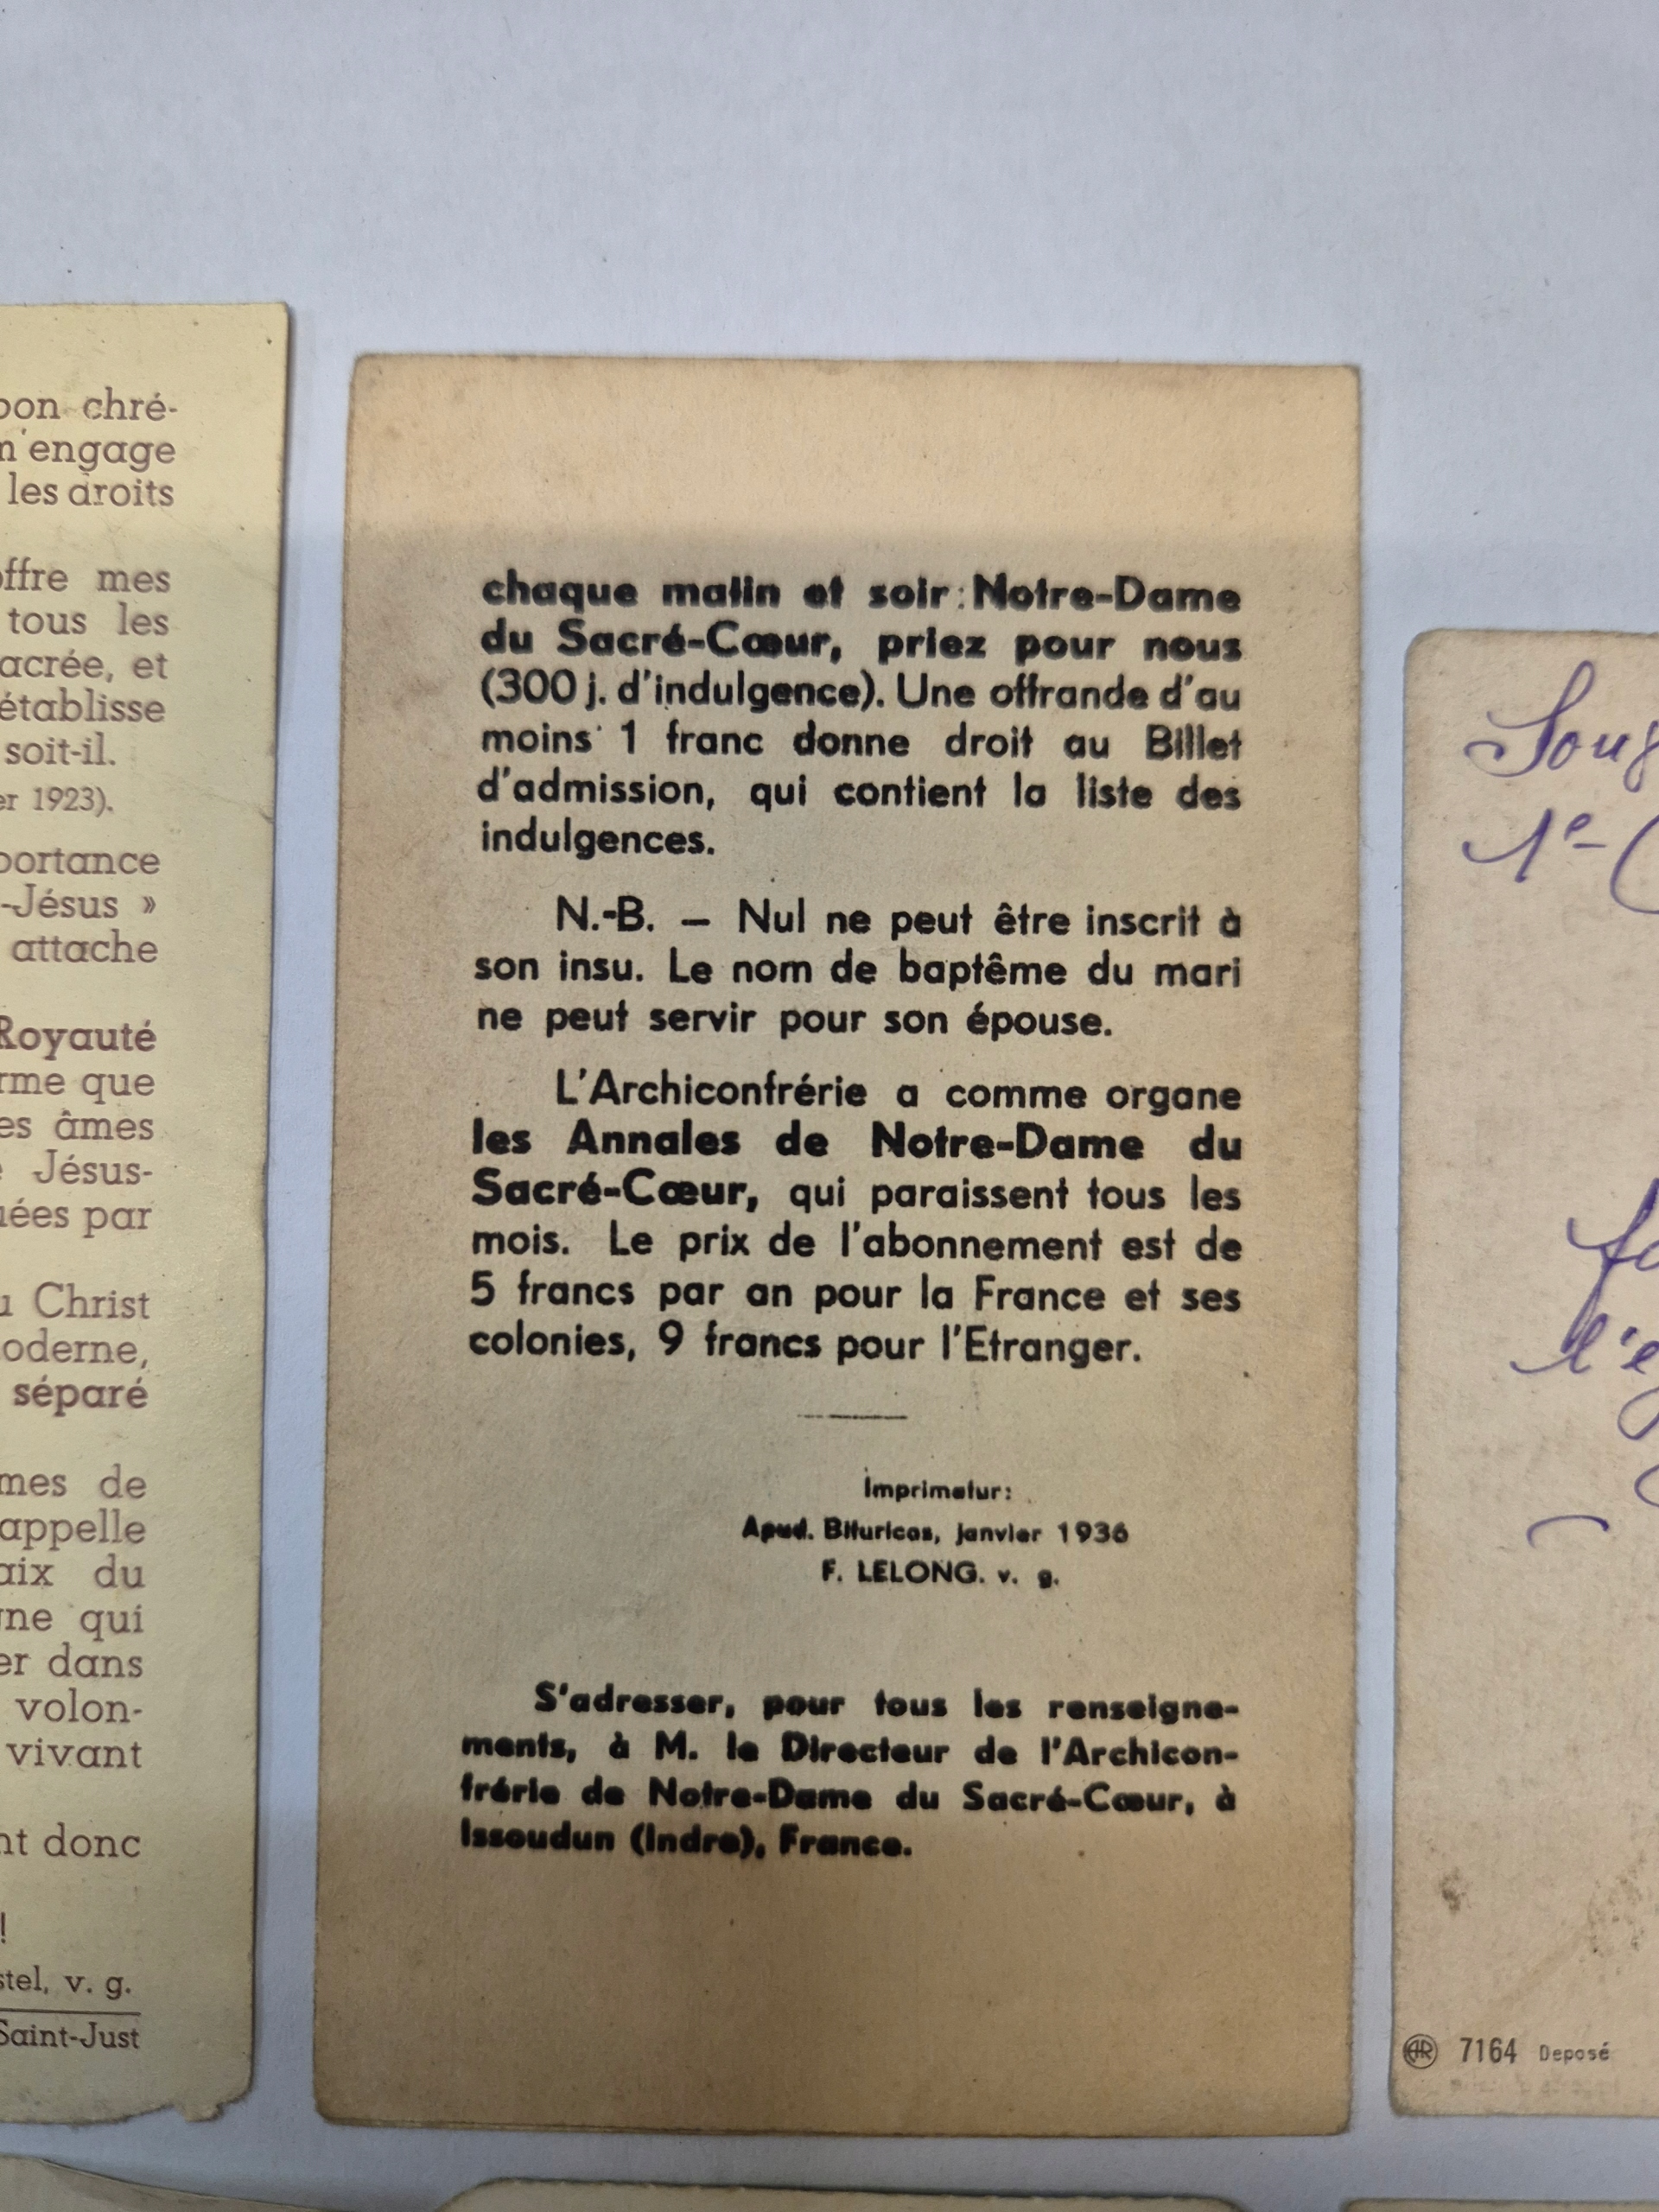 bon chré-
m'engage
les droits
offre mes
tous les
sacrée, et
établisse
soit-il.
er 1923).
portance
-Jésus »
attache
Royauté
rme que
es âmes
Jésus-
uées par
u Christ
oderne,
séparé
mes de
appelle
aix du
gne qui
er dans
volon-
vivant
nt donc
!
stel, v. g.
Saint-Just
chaque matin et soir : Notre-Dame
du Sacré-Cœur, priez pour nous
(300 j. d'indulgence). Une offrande d'au
moins 1 franc donne droit au Billet
d'admission, qui contient la liste des
indulgences.
N.-B. — Nul ne peut être inscrit à
son insu. Le nom de baptême du mari
ne peut servir pour son épouse.
L'Archiconfrérie a comme organe
les Annales de Notre-Dame du
Sacré-Cœur, qui paraissent tous les
mois. Le prix de l'abonnement est de
5 francs par an pour la France et ses
colonies, 9 francs pour l'Etranger.
Imprimatur:
Apud. Bituricas, janvier 1936
F. LELONG. v. g.
S'adresser, pour tous les renseigne-
ments, à M. le Directeur de l'Archicon-
frérie de Notre-Dame du Sacré-Cœur, à
Issoudun (Indre), France.
1e-
7164 Deposé